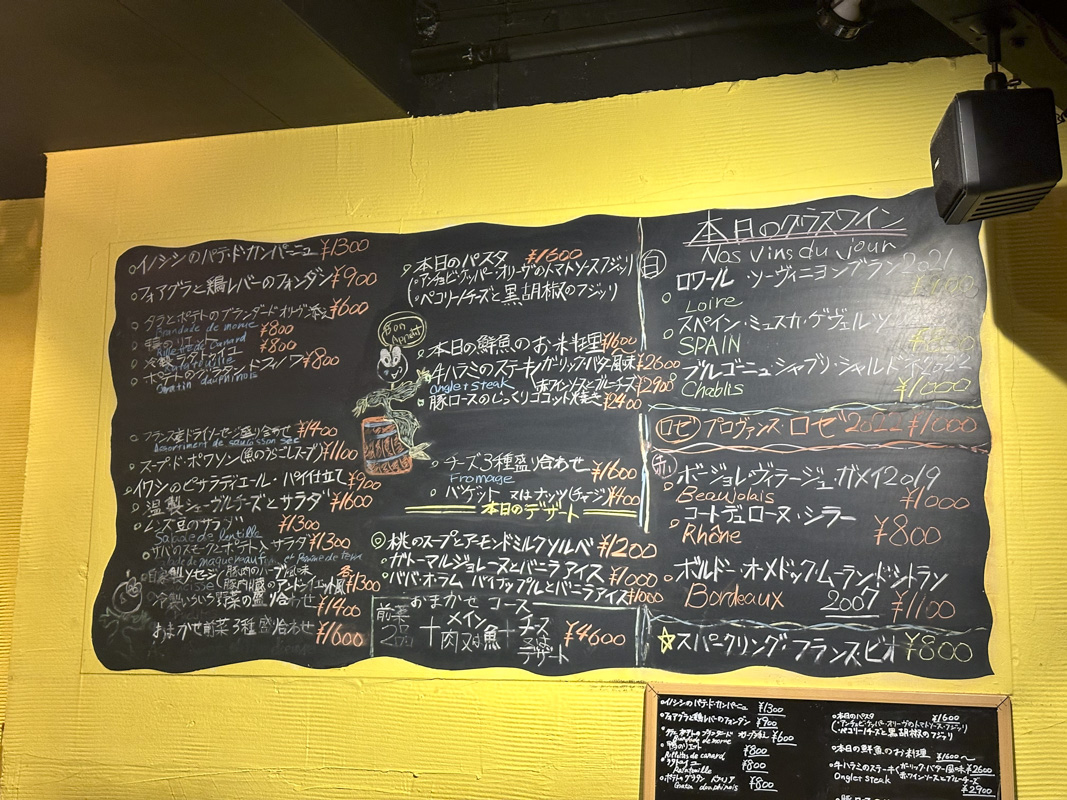 ○イノシシのパテ・ド・カンパーニュ ¥1300
○フォアグラと鶏レバーのフォンダン ¥900
○タラとポテトのブランダード オリーブ添え ¥600
Brandade de morue
○鴨のリエット ¥800
Rillettes de canard
○冷製ラタトゥイユ ¥800
Ratatouille
○ポテトのグラタン・ドフィノワ ¥800
Gratin dauphinois
○フランス産ドライソーセージ盛り合わせ ¥1400
Assortiment de saucisson sec
○スープ・ド・ポワソン(魚のうらごしスープ) ¥1100
○イワシのピサラディエール・パイ仕立て ¥900
○温製シェーヴルチーズとサラダ ¥1600
○レンズ豆のサラダ ¥1300
Salade de lentille
○サバのスモークとポテト入サラダ ¥1300
○自家製ソーセージ(豚肉のハーブ風味 各
豚内臓のアンドゥイエット風 ¥1300
○冷製いろいろ野菜の盛り合わせ ¥1400
おまかせ前菜3種盛り合わせ ¥1600
Bon Appétit
○本日のパスタ ¥1600
(・アンチョビ・ケッパー・オリーヴのトマトソース・フジッリ
・ペコリーノチーズと黒胡椒のフジッリ
○本日の鮮魚のお料理 ¥1600
○牛ハラミのステーキ/ガーリック・バター風味 ¥2600
onglet steak 赤ワインソースとブルーチーズ ¥2900
○豚ロースのじっくりココット焼き ¥2400
○チーズ3種盛り合わせ ¥1600
Fromage
○バゲット 又はナッツ(チャージ) ¥400
本日のデザート
◎桃のスープとアーモンドミルクソルベ ¥1200
○ガトーマルジョレーヌとバニラアイス ¥1000
○ババ・オ・ラム パイナップルとバニラアイス ¥1000
おまかせコース
前菜2品 + メイン 肉又は魚 + チーズ 又は デザート ¥4600
本日のグラスワイン
Nos vins du jour
白
○ロワール ソーヴィニヨンブラン2021
Loire
○スペイン・ミュスカ・ゲヴェルツ
SPAIN
○ブルゴーニュ・シャブリ・シャルドネ2022
Chablis ¥1000
ロゼ プロヴァンス・ロゼ2022 ¥1000
赤
○ボージョレ・ヴィラージュ・ガメイ2019
Beaujolais ¥1000
○コートデュローヌ・シラー
Rhône ¥800
○ボルドー・オ・メドック・ムーランドシトラン
Bordeaux 2007 ¥1100
☆スパークリング・フランス、ビオ ¥800
○イノシシのパテ・ド・カンパーニュ ¥1300
○フォアグラと鶏レバーのフォンダン ¥900
○タラとポテトのブランダード オリーブ添え ¥600
Brandade de morue
○鴨のリエット ¥800
Rillettes de canard
○ラタトゥイユ ¥800
Ratatouille
○ポテトグラタン ¥800
Gratin dauphinois
○本日のパスタ ¥1600
(・アンチョビ・ケッパー・オリーヴのトマトソース・フジッリ
・ペコリーノチーズと黒胡椒のフジッリ
○本日の鮮魚のお料理 ¥1600〜
○牛ハラミのステーキ/ガーリック・バター風味 ¥2600
Onglet steak 赤ワインソースとブルーチーズ ¥2900